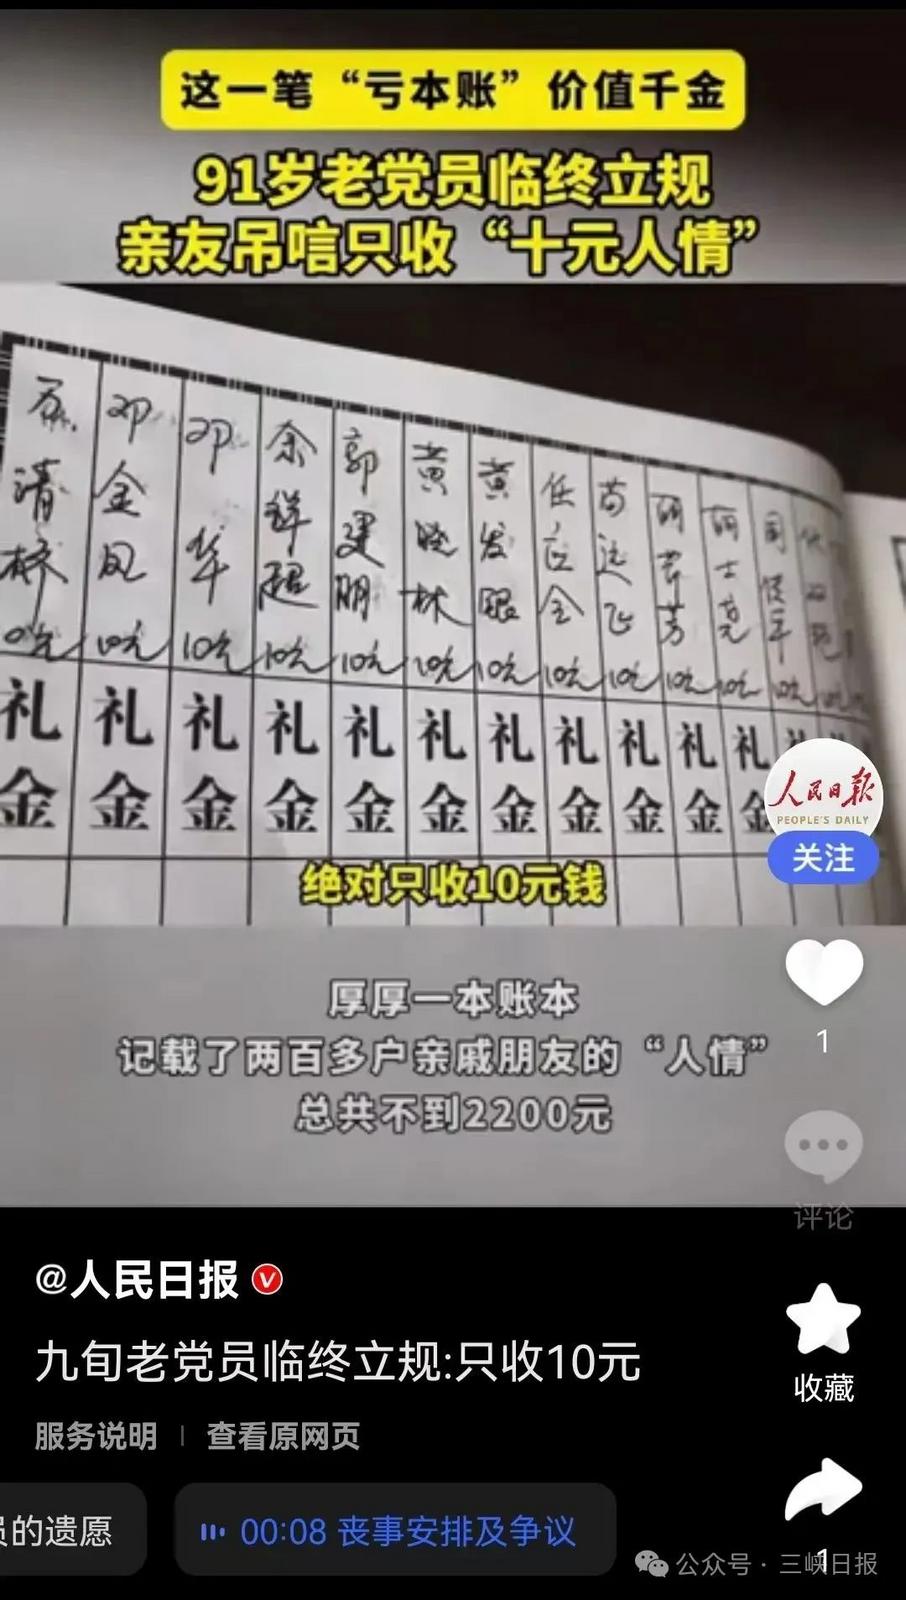 这一笔“亏本账”价值千金
91岁老党员临终立规
亲友吊唁只收“十元人情”
邓金凤 10元
邓华 10元
余祥超 10元
郭建明 10元
黄晓林 10元
黄发银 10元
任运金 10元
苟远飞 10元
10元
10元
10元
礼金 礼金 礼金 礼金 礼金 礼金 礼金 礼金 礼金 礼金 礼金
人民日报
PEOPLE'S DAILY
关注
绝对只收10元钱
厚厚一本账本
记载了两百多户亲戚朋友的“人情”
总共不到2200元
1
评论
@人民日报
九旬老党员临终立规:只收10元
收藏
服务说明 | 查看原网页
员的遗愿
00:08 丧事安排及争议
1
公众号·三峡日报